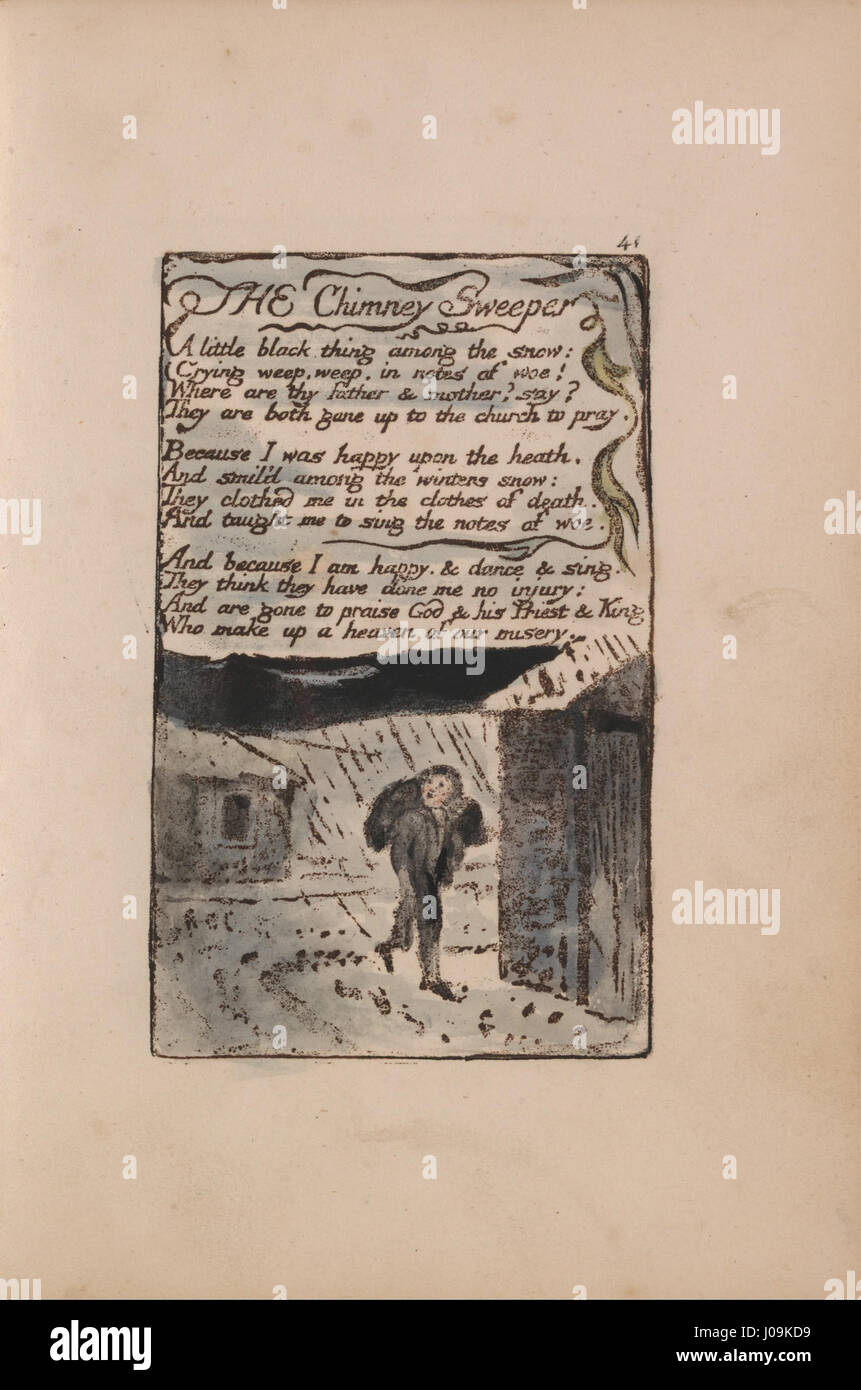 41
THE Chimney Sweeper
A little black thing among the snow:
Crying weep, weep, in notes of woe!
Where are thy father & mother? say?
They are both gone up to the church to pray.
Because I was happy upon the heath.
And smil'd among the winters snow:
They clothed me in the clothes of death.
And taught me to sing the notes of woe.
And because I am happy. & dance & sing.
They think they have done me no injury:
And are gone to praise God & his Priest & King
Who make up a heaven of our misery.
a alamy
alamy
a
a
a
a
a
alamy
a
alamy
www.alamy.com
Image ID: J09KD9